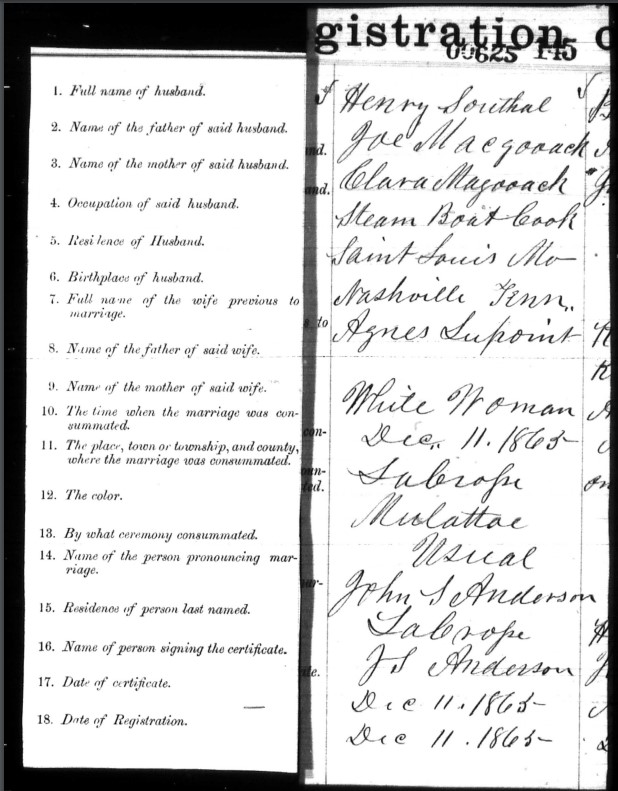 gistration o
00625 145
1. Full name of husband.
2. Name of the father of said husband.
3. Name of the mother of said husband.
4. Occupation of said husband.
5. Residence of Husband.
6. Birthplace of husband.
7. Full name of the wife previous to
marriage.
8. Name of the father of said wife.
9. Name of the mother of said wife.
10. The time when the marriage was con-
summated.
11. The place, town or township, and county,
where the marriage was consummated.
12. The color.
13. By what ceremony consummated.
14. Name of the person pronouncing mar-
riage.
15. Residence of person last named.
16. Name of person signing the certificate.
17. Date of certificate.
18. Date of Registration.
Henry Southal
Joe Macgooach
Clara Magooach
Steam Boat Cook
Saint Louis Mo
Nashville Tenn,,
Agnes Lupoint
White Woman
Dec,, 11. 1865
LaCrosse
Mulattoe
Usual
John S Anderson
LaCrosse
J S Anderson
Dec 11. 1865
Dec 11. 1865